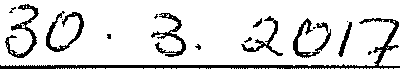 30. 3. 2017